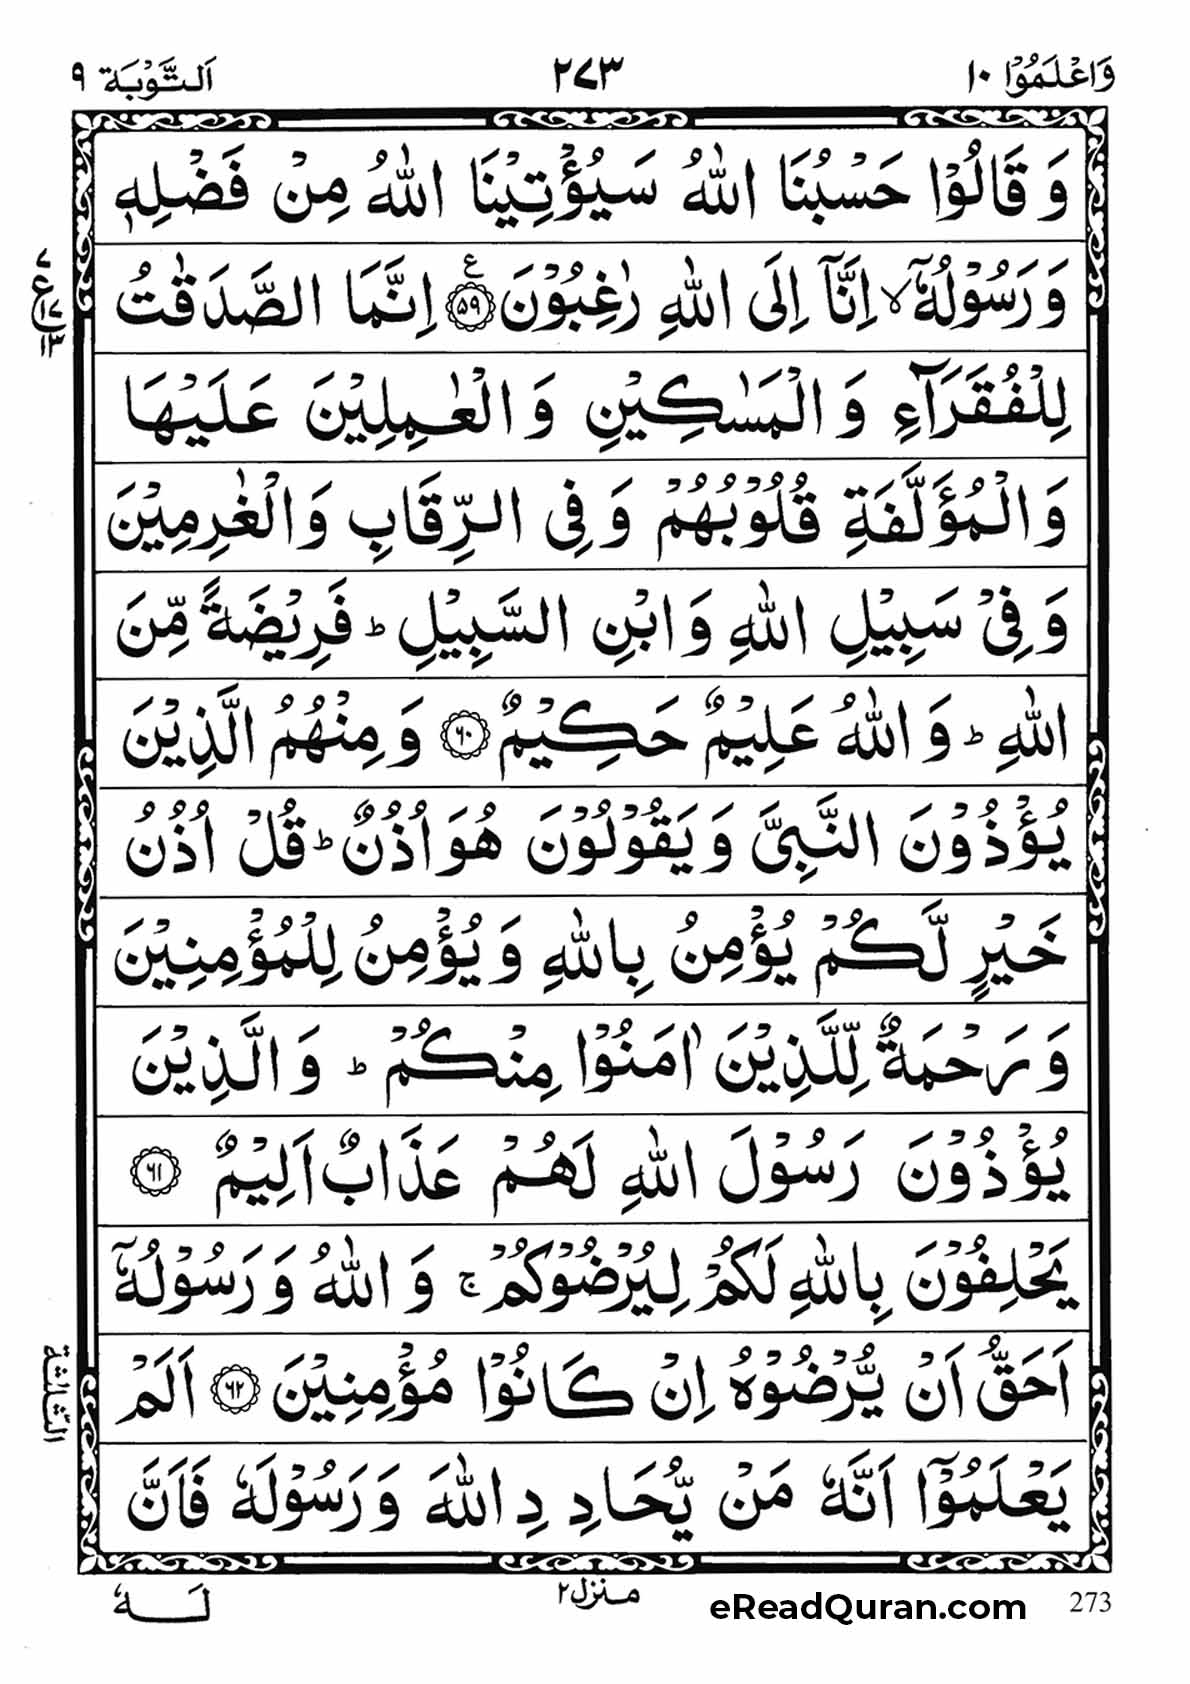 وَاعْلَمُوْۤا ١٠
٢٧٣
اَلتَّوْبَة ٩
وَ قَالُوْا حَسْبُنَا اللّٰهُ سَيُؤْتِيْنَا اللّٰهُ مِنْ فَضْلِهٖ
وَ رَسُوْلُهٗۤ ۙ اِنَّاۤ اِلَى اللّٰهِ رٰغِبُوْنَ ﴿۵۹﴾ ع اِنَّمَا الصَّدَقٰتُ
لِلْفُقَرَآءِ وَ الْمَسٰكِيْنِ وَ الْعٰمِلِيْنَ عَلَيْهَا
وَ الْمُؤَلَّفَةِ قُلُوْبُهُمْ وَ فِى الرِّقَابِ وَ الْغٰرِمِيْنَ
وَ فِىْ سَبِيْلِ اللّٰهِ وَ ابْنِ السَّبِيْلِ ؕ فَرِيْضَةً مِّنَ
اللّٰهِ ؕ وَ اللّٰهُ عَلِيْمٌ حَكِيْمٌ ﴿۶۰﴾ وَ مِنْهُمُ الَّذِيْنَ
يُؤْذُوْنَ النَّبِىَّ وَ يَقُوْلُوْنَ هُوَ اُذُنٌ ؕ قُلْ اُذُنُ
خَيْرٍ لَّكُمْ يُؤْمِنُ بِاللّٰهِ وَ يُؤْمِنُ لِلْمُؤْمِنِيْنَ
وَ رَحْمَةٌ لِّلَّذِيْنَ اٰمَنُوْا مِنْكُمْ ؕ وَ الَّذِيْنَ
يُؤْذُوْنَ رَسُوْلَ اللّٰهِ لَهُمْ عَذَابٌ اَلِيْمٌ ﴿۶۱﴾
يَحْلِفُوْنَ بِاللّٰهِ لَكُمْ لِيُرْضُوْكُمْ ۚ وَ اللّٰهُ وَ رَسُوْلُهٗۤ
اَحَقُّ اَنْ يُّرْضُوْهُ اِنْ كَانُوْا مُؤْمِنِيْنَ ﴿۶۲﴾ اَلَمْ
يَعْلَمُوْۤا اَنَّهٗ مَنْ يُّحَادِدِ اللّٰهَ وَ رَسُوْلَهٗ فَاَنَّ
٧ ع ١٧ ١٣
الثَّلٰثَة
لَهٗ
منزل ٢
eReadQuran.com
273